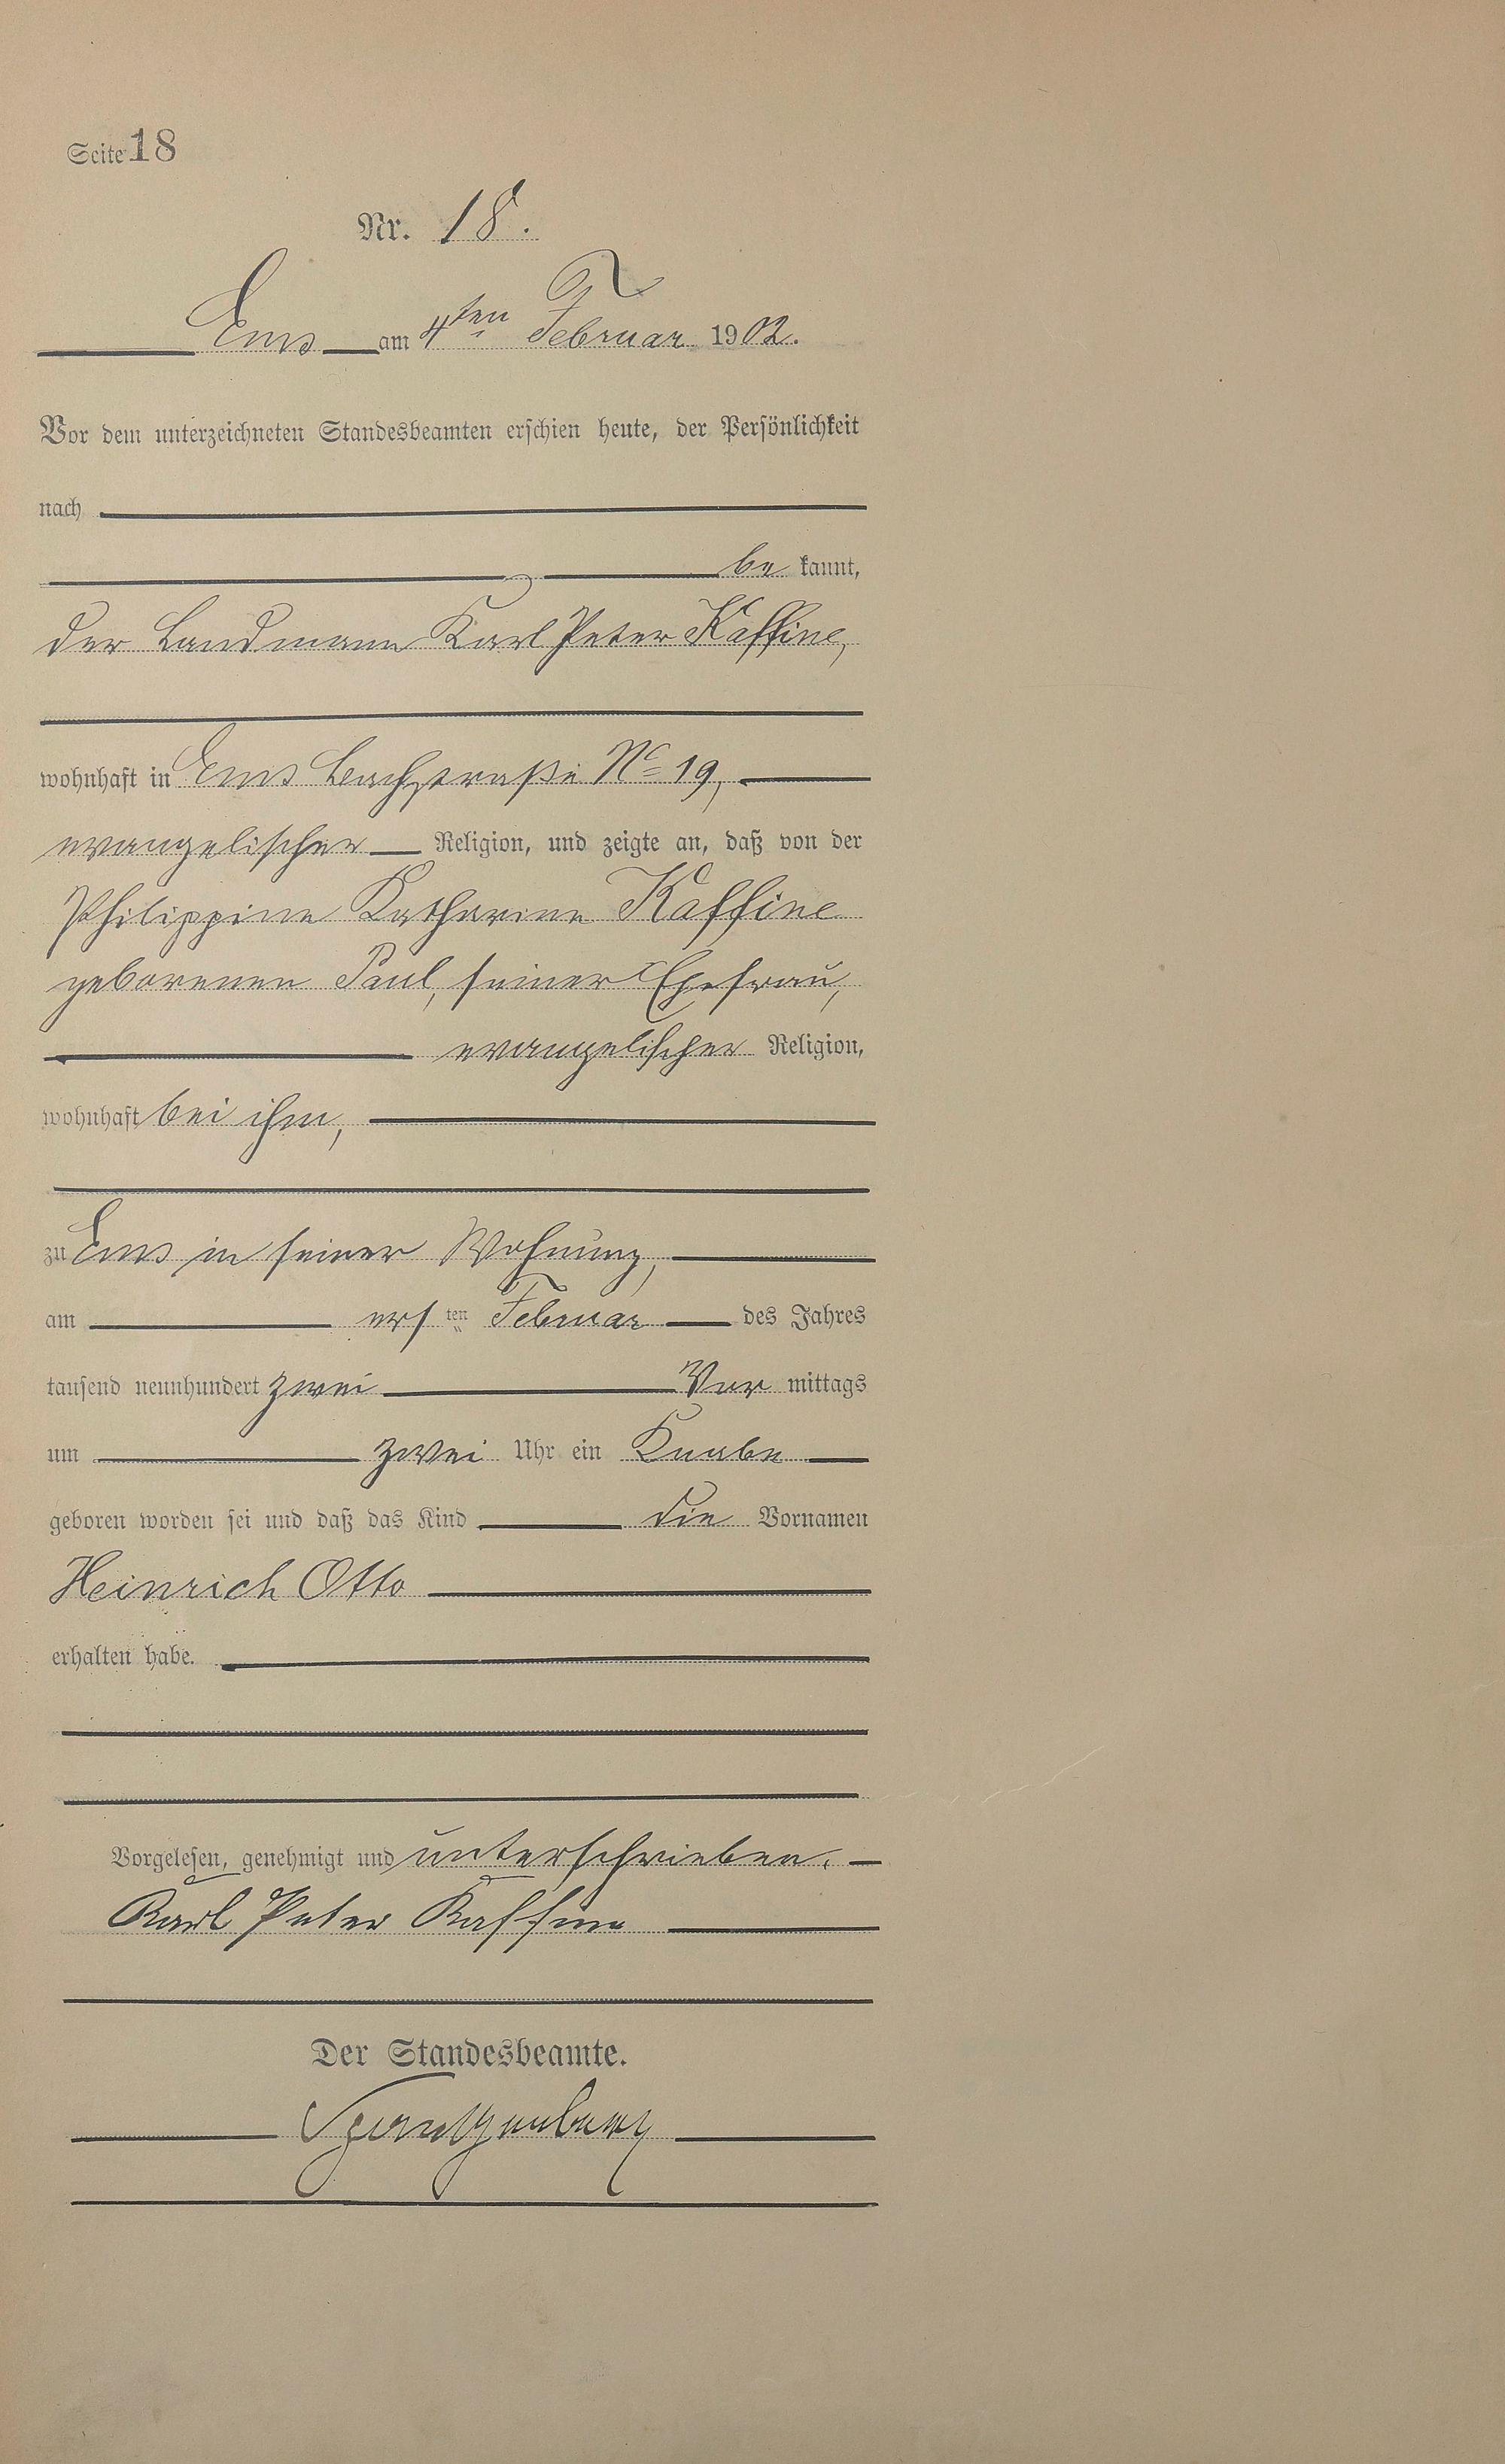 Seite 18
Nr. 18.
Ems am 4ten Februar 1902.
Vor dem unterzeichneten Standesbeamten erschien heute, der Persönlichkeit
nach
be kannt,
der Landmann Karl Peter Kaffine,
wohnhaft in Ems Bachstraße No 19,
evangelischer Religion, und zeigte an, daß von der
Philippine Katharine Kaffine
geborenen Paul, seiner Ehefrau,
evangelischer Religion,
wohnhaft bei ihm,
zu Ems in seiner Wohnung,
am ersten Februar des Jahres
tausend neunhundert zwei Vor mittags
um zwei Uhr ein Knabe
geboren worden sei und daß das Kind die Vornamen
Heinrich Otto
erhalten habe.
Vorgelesen, genehmigt und unterschrieben.
Karl Peter Kaffine
Der Standesbeamte.